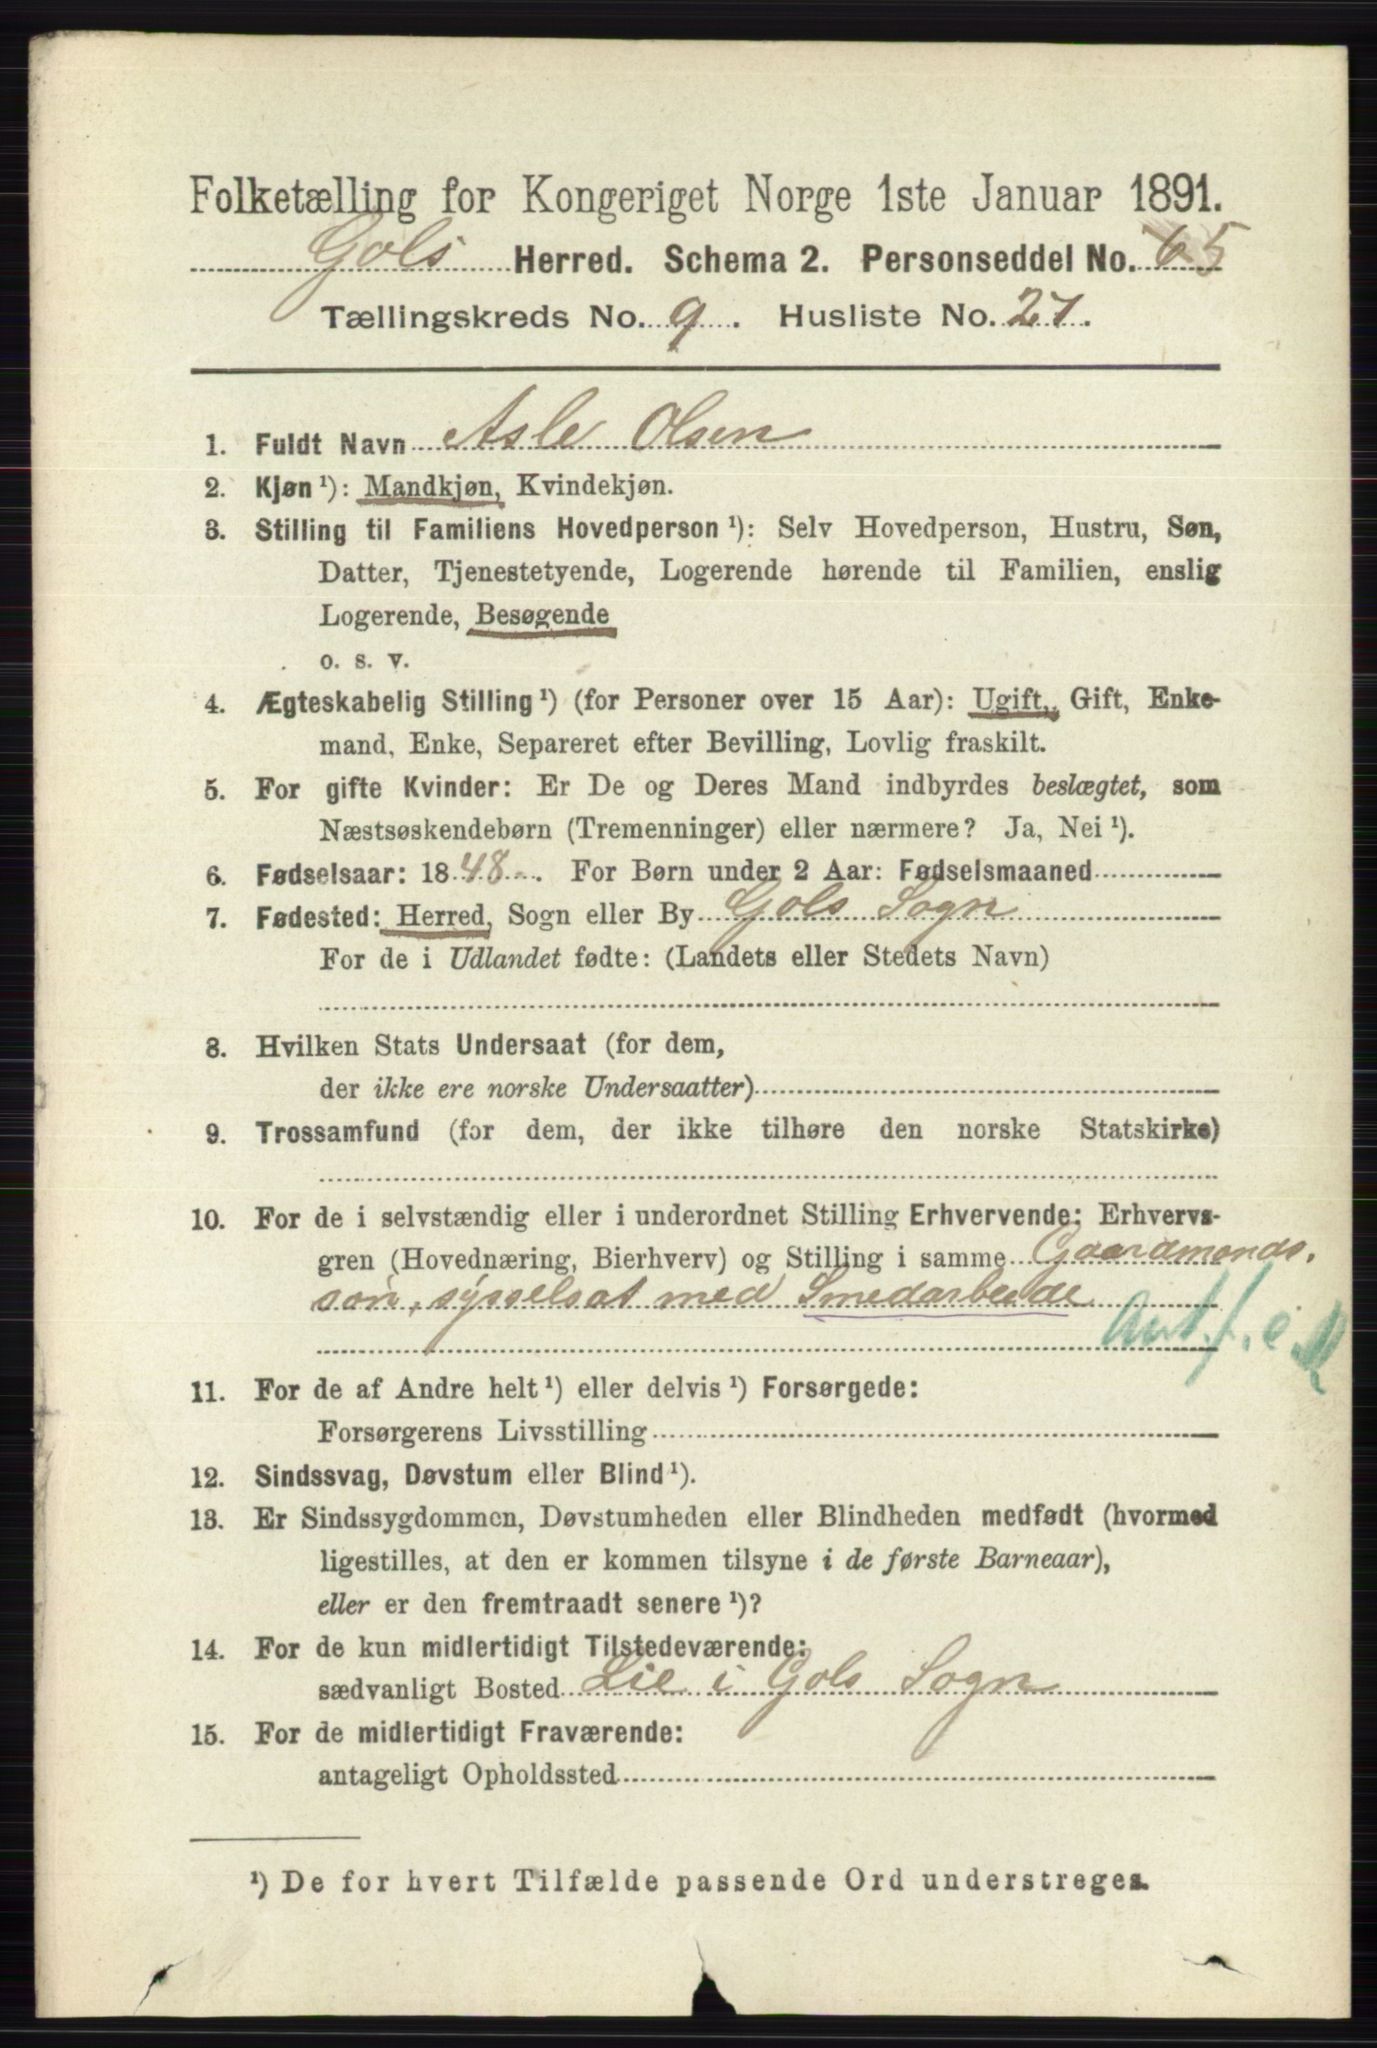 Folketælling for Kongeriget Norge 1ste Januar 1891.
Gols Herred. Schema 2. Personseddel No. 65
Tællingskreds No. 9. Husliste No. 27.
1. Fuldt Navn Asle Olsen
2. Kjøn ¹): Mandkjøn, Kvindekjøn.
3. Stilling til Familiens Hovedperson ¹): Selv Hovedperson, Hustru, Søn,
Datter, Tjenestetyende, Logerende hørende til Familien, enslig
Logerende, Besøgende
o. s. v.
4. Ægteskabelig Stilling ¹) (for Personer over 15 Aar): Ugift, Gift, Enke-
mand, Enke, Separeret efter Bevilling, Lovlig fraskilt.
5. For gifte Kvinder: Er De og Deres Mand indbyrdes beslægtet, som
Næstsøskendebørn (Tremenninger) eller nærmere? Ja, Nei ¹).
6. Fødselsaar: 1848. For Børn under 2 Aar: Fødselsmaaned
7. Fødested: Herred, Sogn eller By Gols Sogn
For de i Udlandet fødte: (Landets eller Stedets Navn)
8. Hvilken Stats Undersaat (for dem,
der ikke ere norske Undersaatter)
9. Trossamfund (for dem, der ikke tilhøre den norske Statskirke)
10. For de i selvstændig eller i underordnet Stilling Erhvervende: Erhvervs-
gren (Hovednæring, Bierhverv) og Stilling i samme Gaardmands-
søn, sysselsat med Smedarbeide
11. For de af Andre helt ¹) eller delvis ¹) Forsørgede:
Forsørgerens Livsstilling
12. Sindssvag, Døvstum eller Blind ¹).
13. Er Sindssygdommen, Døvstumheden eller Blindheden medfødt (hvormed
ligestilles, at den er kommen tilsyne i de første Barneaar),
eller er den fremtraadt senere ¹)?
14. For de kun midlertidigt Tilstedeværende:
sædvanligt Bosted Lie i Gols Sogn
15. For de midlertidigt Fraværende:
antageligt Opholdssted
¹) De for hvert Tilfælde passende Ord understreges.